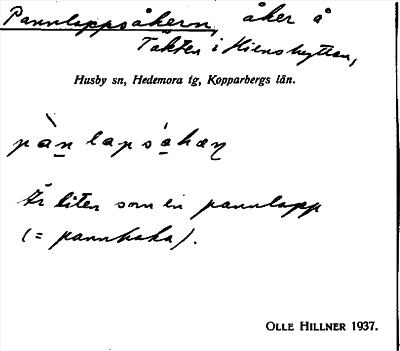 Pannlappsåkern, åker å
Täkten i Kienshyttan,
Husby sn, Hedemora tg, Kopparbergs län.
Är liten som en pannlapp
(= pannkaka).
OLLE HILLNER 1937.